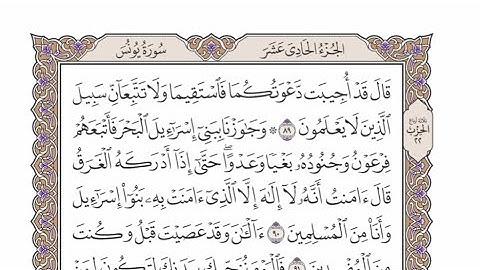 الجُزْءُ الحَادِي عَشَرَ
سُورَةُ يُونُسَ
قَالَ قَدۡ أُجِيبَت دَّعۡوَتُكُمَا فَٱسۡتَقِيمَا وَلَا تَتَّبِعَآنِّ سَبِيلَ
ٱلَّذِينَ لَا يَعۡلَمُونَ ٨٩ ۞ وَجَٰوَزۡنَا بِبَنِيٓ إِسۡرَٰٓءِيلَ ٱلۡبَحۡرَ فَأَتۡبَعَهُمۡ
فِرۡعَوۡنُ وَجُنُودُهُۥ بَغۡيٗا وَعَدۡوًاۖ حَتَّىٰٓ إِذَآ أَدۡرَكَهُ ٱلۡغَرَقُ
قَالَ ءَامَنتُ أَنَّهُۥ لَآ إِلَٰهَ إِلَّا ٱلَّذِيٓ ءَامَنَتۡ بِهِۦ بَنُوٓاْ إِسۡرَٰٓءِيلَ
وَأَنَا۠ مِنَ ٱلۡمُسۡلِمِينَ ٩٠ ءَآلۡـَٰٔنَ وَقَدۡ عَصَيۡتَ قَبۡلُ وَكُنتَ
مِنَ ٱلۡمُفۡسِدِينَ ٩١ فَٱلۡيَوۡمَ نُنَجِّيكَ بِبَدَنِكَ لِتَكُونَ لِمَنۡ
ثلاثة أرباع
الحِزْب
٢٢